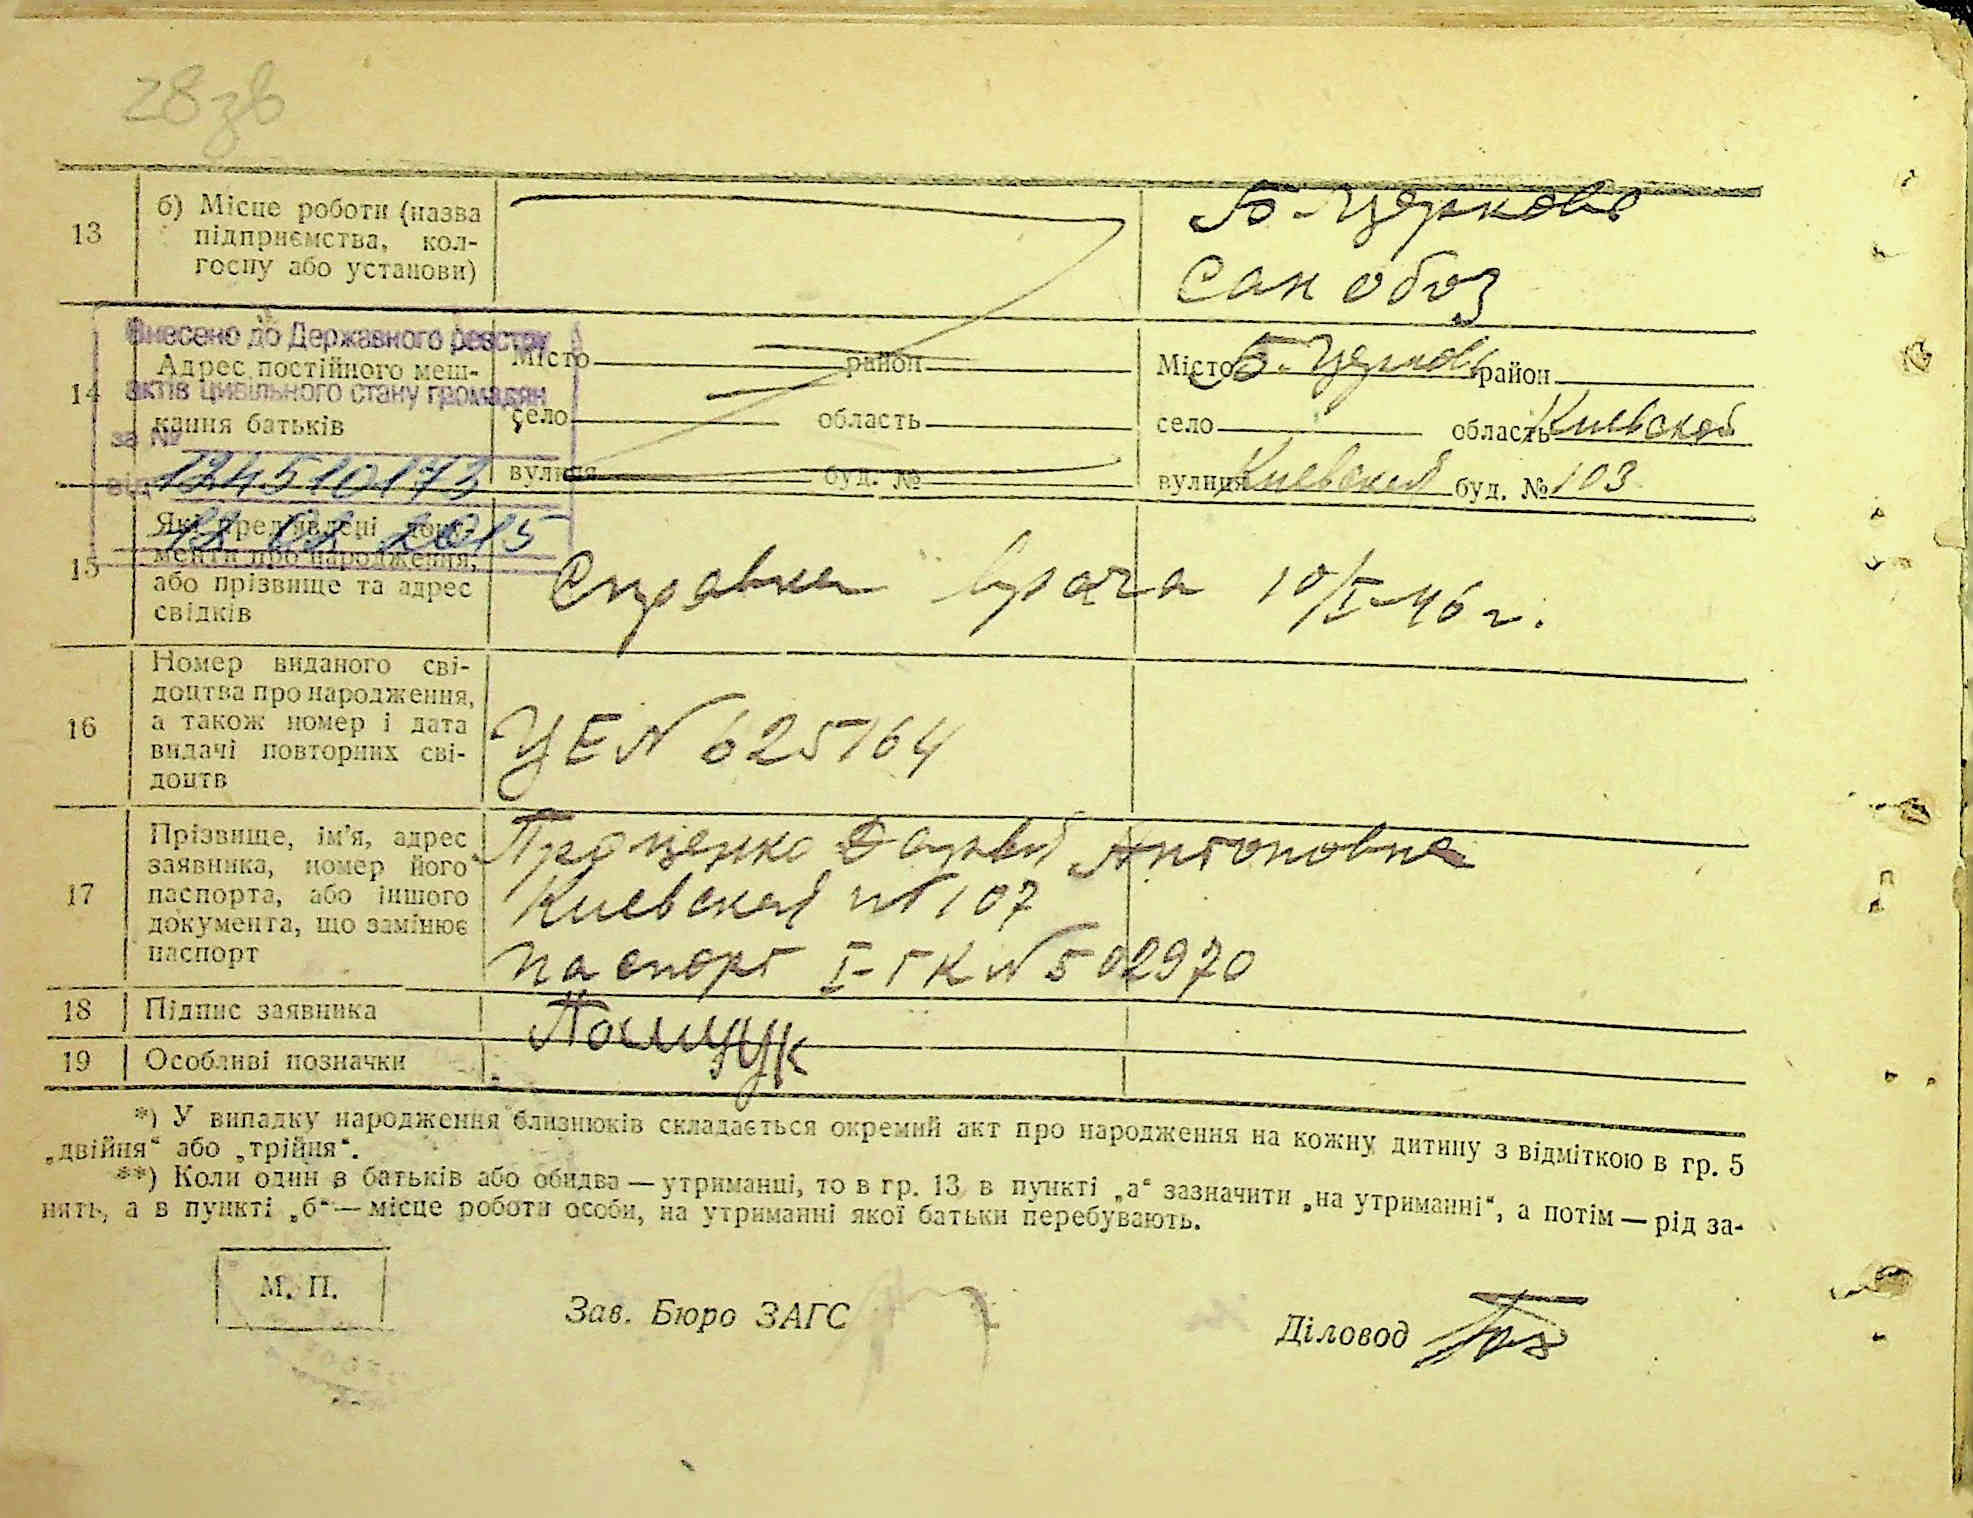 28зв
13
б) Місце роботи (назва
підприємства, кол-
госпу або установи)
Б-Церковь
Сан обоз
Внесено до Державного реєстру
актів цивільного стану громадян
за №
від
12 02 2015
14
Адрес постійного меш-
кання батьків
Місто район
село область
вулиця буд. №
Місто Б-Церковь район
село область Киевской
вулиця Киевская буд. № 103
15
Які пред'явлені доку-
менти про народження,
або прізвище та адрес
свідків
Справка врача 10/I-46 г.
16
Номер виданого сві-
доцтва про народження,
а також номер і дата
видачі повторних сві-
доцтв
УЕ N 625164
17
Прізвище, ім'я, адрес
заявника, номер його
паспорта, або іншого
документа, що замінює
паспорт
Проценко Антоновна
Киевская N 107
паспорт I-ГК N 502970
18
Підпис заявника
19
Особливі позначки
*) У випадку народження близнюків складається окремий акт про народження на кожну дитину з відміткою в гр. 5
„двійня“ або „трійня“.
**) Коли один з батьків або обидва — утриманці, то в гр. 13 в пункті „а“ зазначити „на утриманні“, а потім — рід за-
нять, а в пункті „б“ — місце роботи особи, на утриманні якої батьки перебувають.
М. П.
Зав. Бюро ЗАГС
Діловод